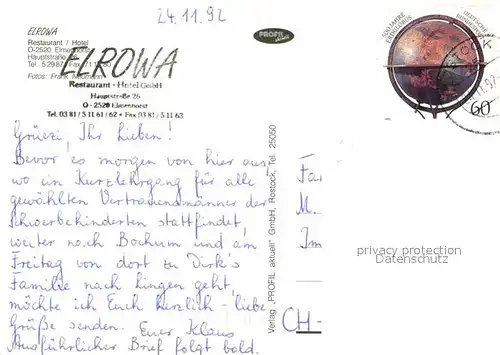 24.11.92
ELROWA
Restaurant / Hotel
O-2520 Elmenhorst
Hauptstraße
Tel. 5 29 8
Fotos: Frank Neumann
ELROWA
Restaurant - Hotel GmbH
Hauptstraße 26
O - 2520 Elmenhorst
Tel. 03 81 / 5 11 61 / 62 + Fax 03 81 / 5 11 63
PROFIL
aktuell
500 JAHRE
ERDGLOBUS
DEUTSCHE
BUNDESPOST
60
Grüezi, Ihr Lieben!
Bevor es morgen von hier aus,
wo ein Kurzlehrgang für alle
gewählten Vertrauensmänner der
Schwerbehinderten stattfindet,
weiter nach Bochum und am
Freitag von dort zu Dirk's
Familie nach hingen geht,
möchte ich Euch herzlich-liebe
Grüße senden. Euer Klaus
Ausführlicher Brief folgt bald.
Verlag „PROFIL aktuell" GmbH, Rostock, Tel. 25050
Fa
M.
Im
CH-
privacy protection
Datenschutz